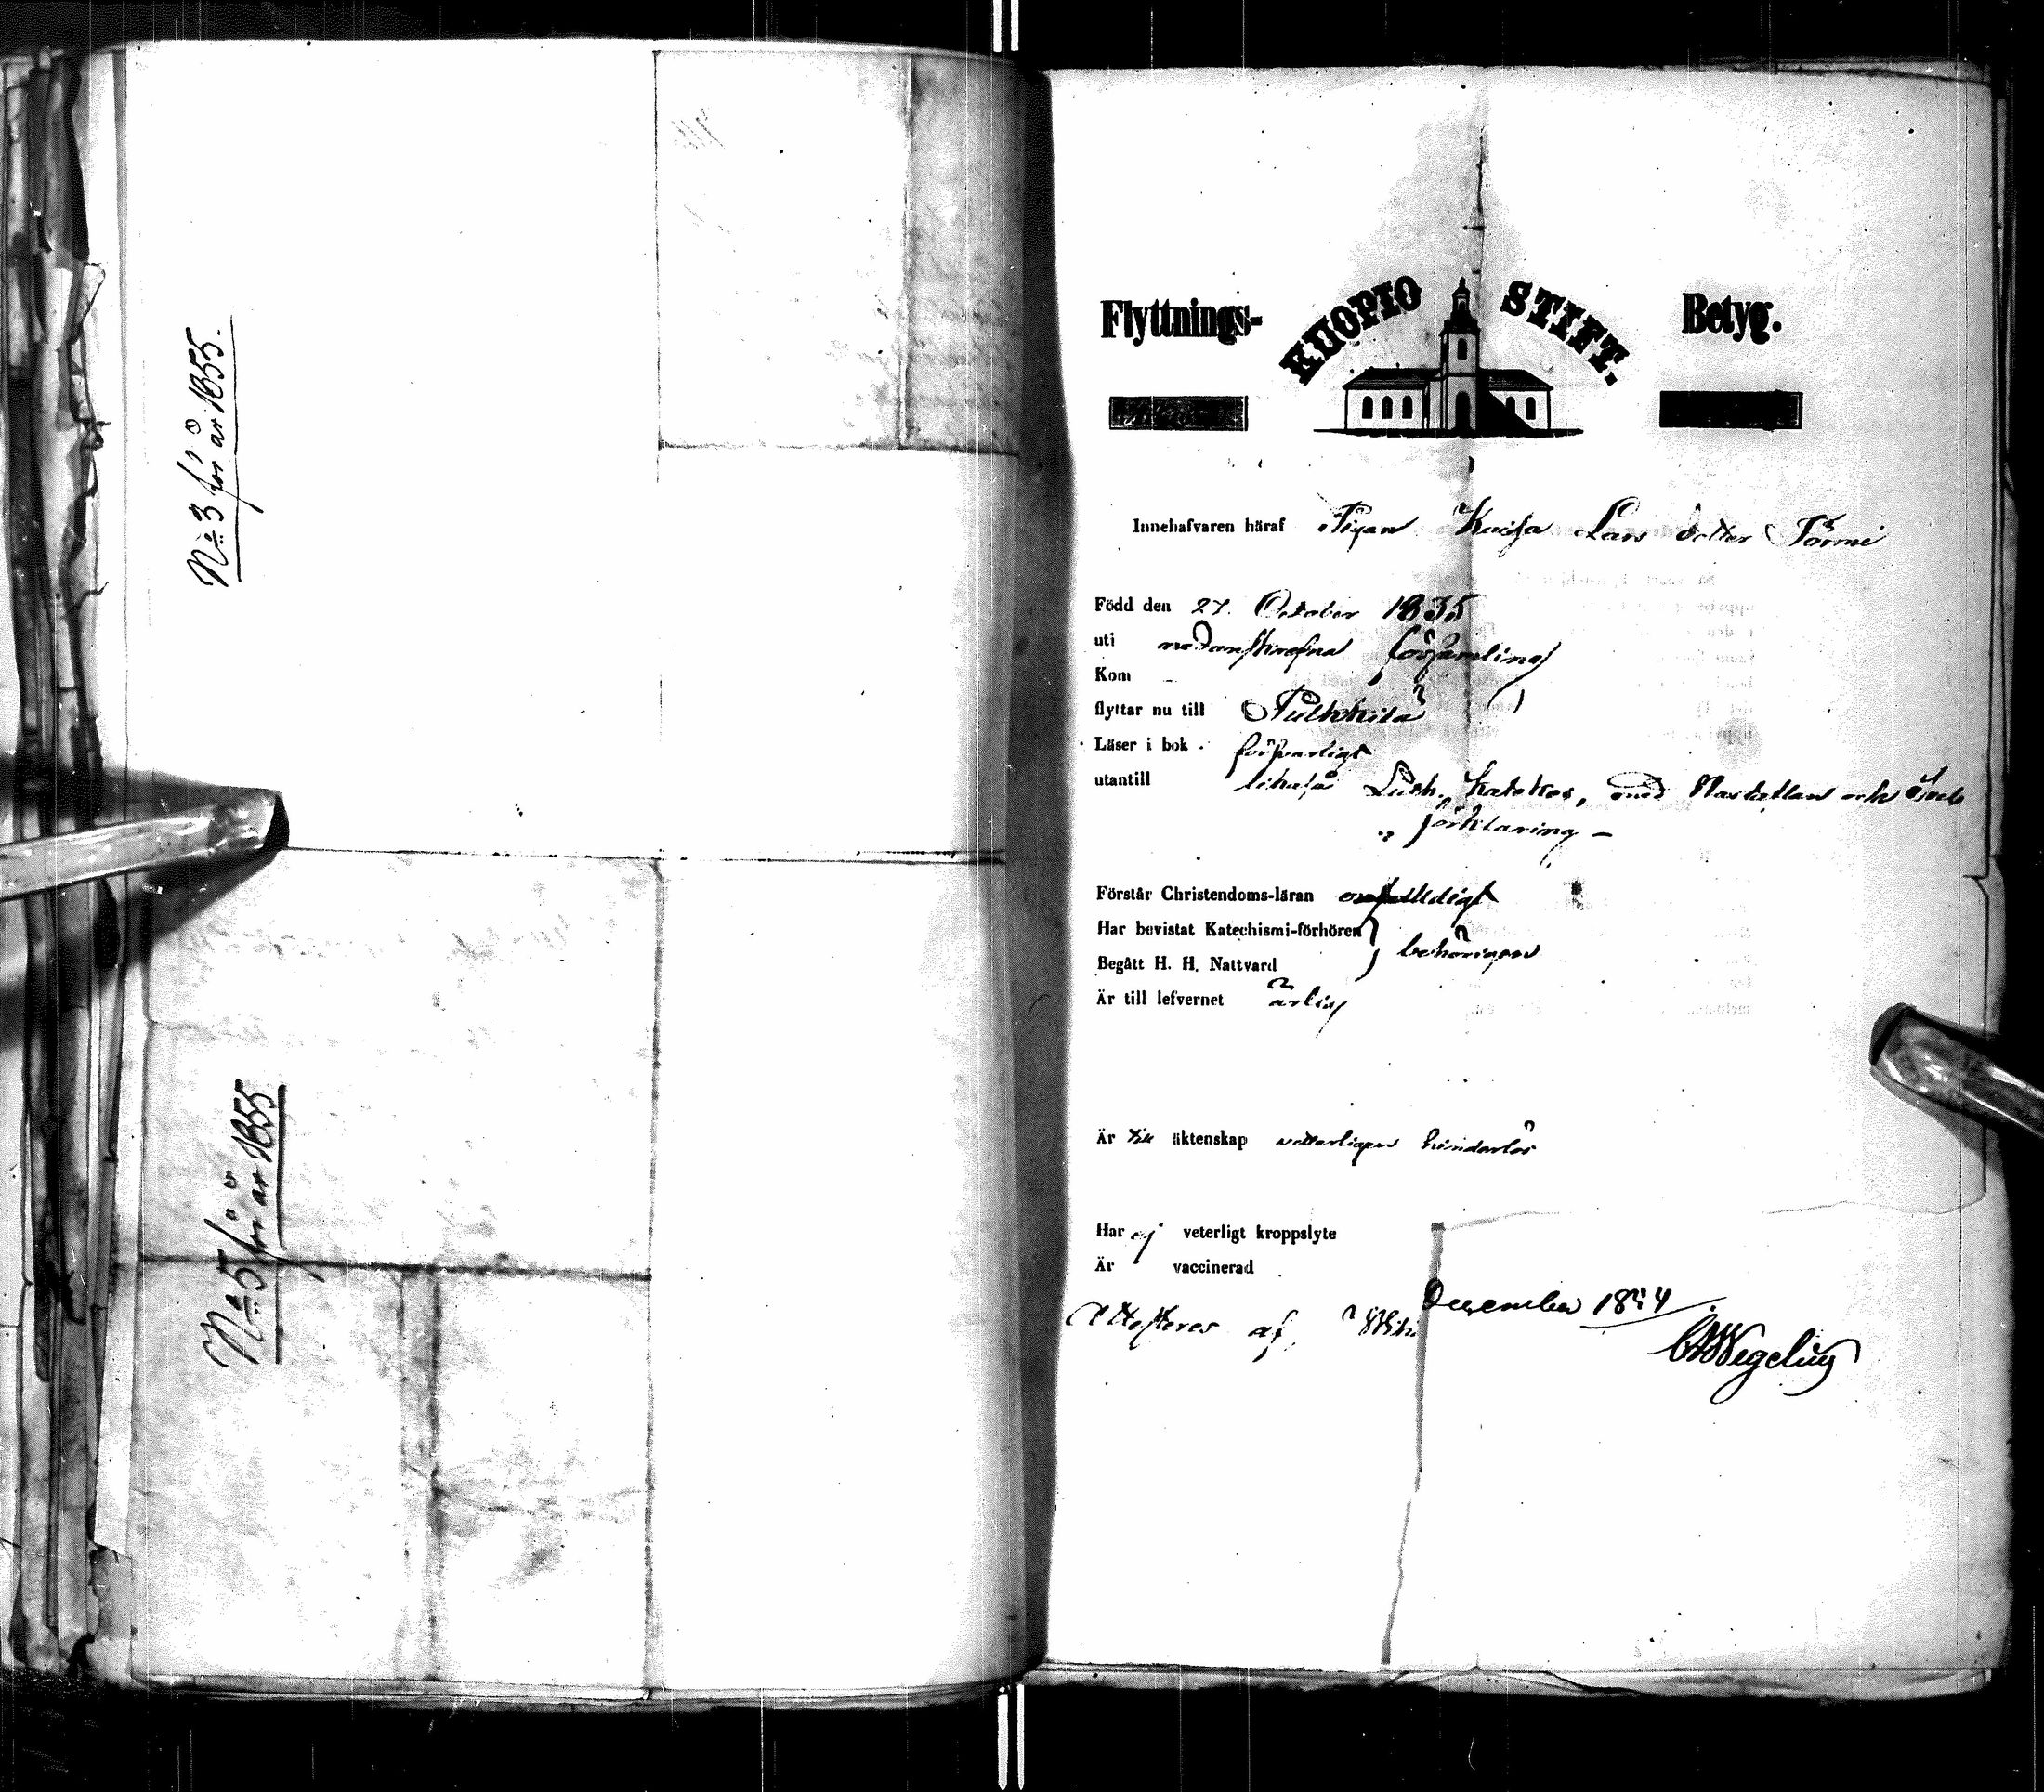 No 3 för år 1855.
No 5 för år 1855
Flyttnings- KUOPIO STIFT. Betyg.
Innehafvaren häraf Pigan Kaisa Lars dotter Törmi
Född den 27. October 1835
uti nedanskrefna församling
Kom
flyttar nu till Pulkkila
Läser i bok försvarligt
utantill likaså Luth. katekes, med Hustaflan och Sveb
" förklaring –
Förstår Christendoms-läran enfalldigt
Har bevistat Katechismi-förhören
behörigen
Begått H. H. Nattvard
Är till lefvernet ärlig
Är till äktenskap vetterligen hinderlös
Har ej veterligt kroppslyte
Är vaccinerad
Attesteras af December 1854
Wegelius